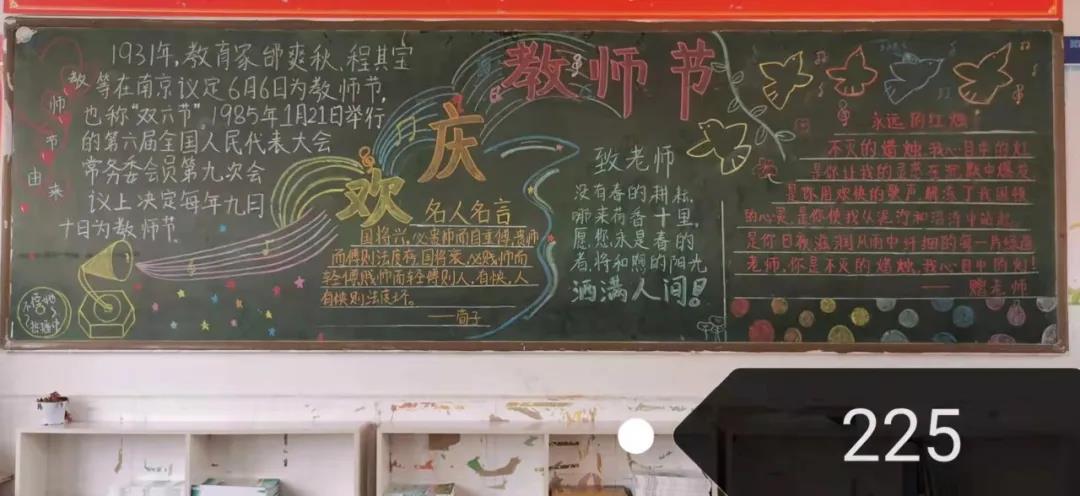 教师节由来
1931年,教育家邰爽秋、程其宝
等在南京议定6月6日为教师节,
也称“双六节”。1985年1月21日举行
的第六届全国人民代表大会
常务委员会员第九次会
议上决定每年九月
十日为教师节.
欢庆
教师节
名人名言
国将兴,必贵师而自重傅,贵师
而傅则法度存,国将衰,必贱师而
轻傅,贱师而轻傅则人,有快,人
有快则法度坏。
——荀子
致老师
没有春的耕耘,
哪来荷香十里,
愿您永是春的
者,将和煦的阳光
洒满人间!
永远的红烛
不灭的蜡烛,我心目中的灯
是你让我的灵魂在沉默中爆发
是你用欢快的歌声解冻了我困顿
的心灵,是你使我从泥泞和沼泽中站起
是你日夜滋润风雨中纤细的每一片绿

老师,你是不灭的蜡烛,我心目中的灯!
——赠老师
225